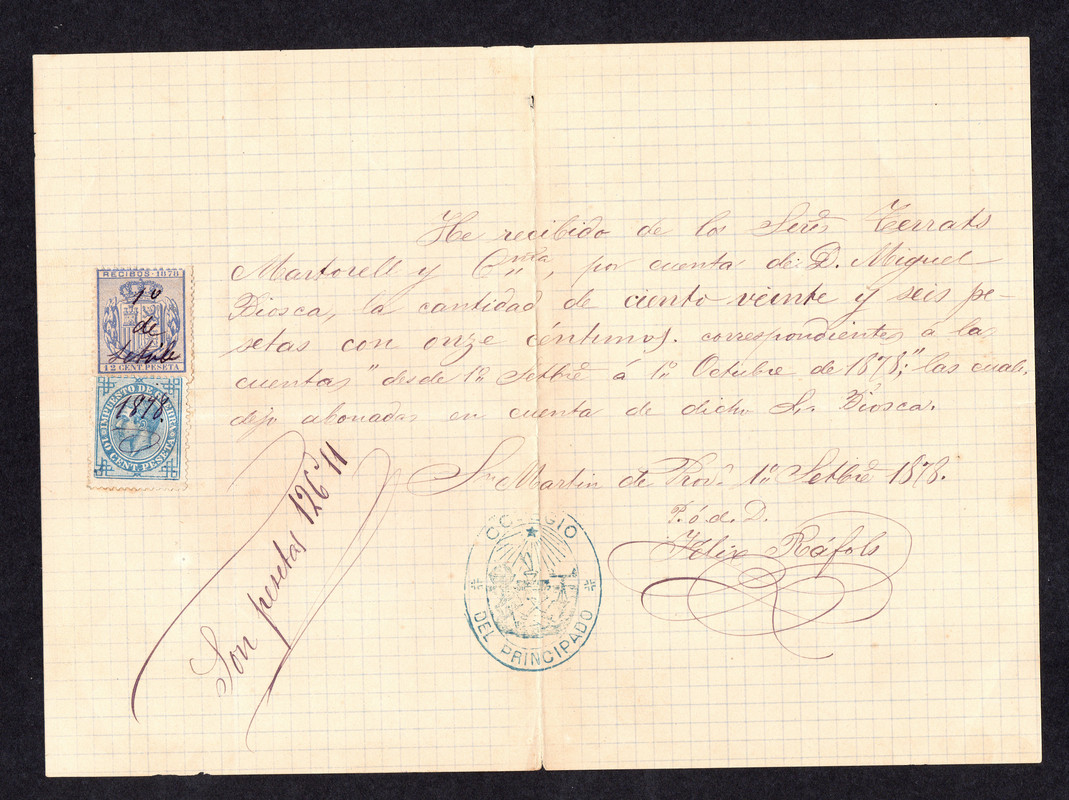 He recibido de los Señs Terrats
Martorell y Cmta, por cuenta de D. Miguel
Biosca, la cantidad de ciento veinte y seis pe-
setas con onze céntimos. correspondientes a las
cuentas "desde 1º Setbre á 1º Octubre de 1878," las cuales
dejo abonadas en cuenta de dicho Sr. Biosca.
Sn. Martin de Prov. 1º Setbre 1878.
P. ó. d. D.
Felix Ráfols
Son pesetas 126'11
RECIBOS-1878
1º
de
Setbre
12 CENT. PESETA
IMPUESTO DE GUERRA
1878.
10 CENT. PESETA
COLEGIO
DEL PRINCIPADO